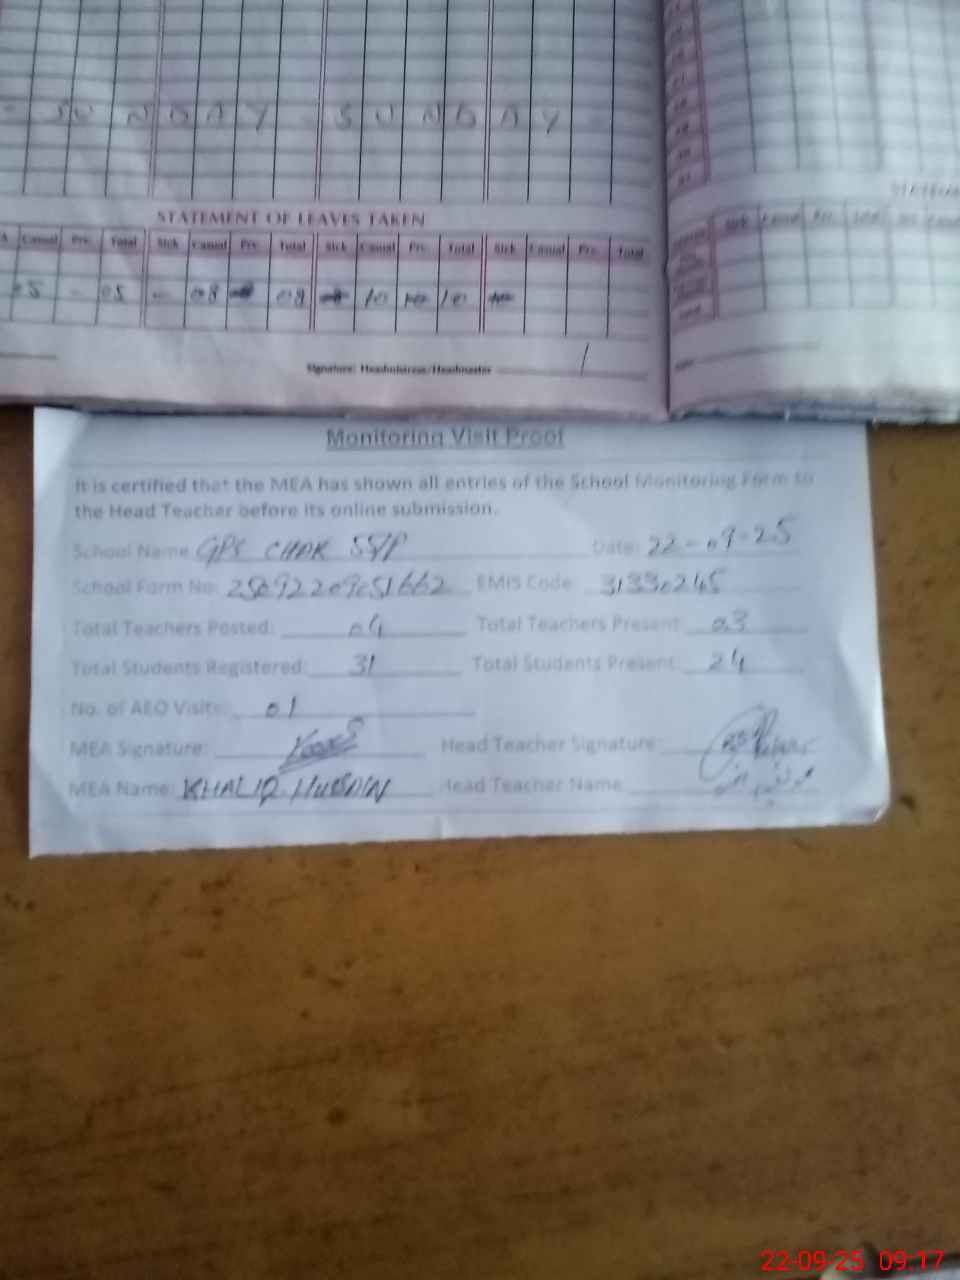 SUNDAY SUNDAY
STATEMENT OF LEAVES TAKEN
Casual Prv. Total Sick Casual Prv. Total Sick Casual Prv. Total Sick Casual Prv. Total
05 - 05 - 08 08 10 10
Signature: Headmistress/Headmaster
Sick Casual
Monitoring Visit Proof
It is certified that the MEA has shown all entries of the School Monitoring Form to
the Head Teacher before its online submission.
School Name GPS CHAK 55/P Date: 22-09-25
School Form No: 25092209051662 EMIS Code: 31330245
Total Teachers Posted: 04 Total Teachers Present: 03
Total Students Registered: 31 Total Students Present: 24
No. of AEO Visits: 01
MEA Signature: Head Teacher Signature:
MEA Name: KHALIQ HUSSAIN Head Teacher Name
22-09-25 09:17